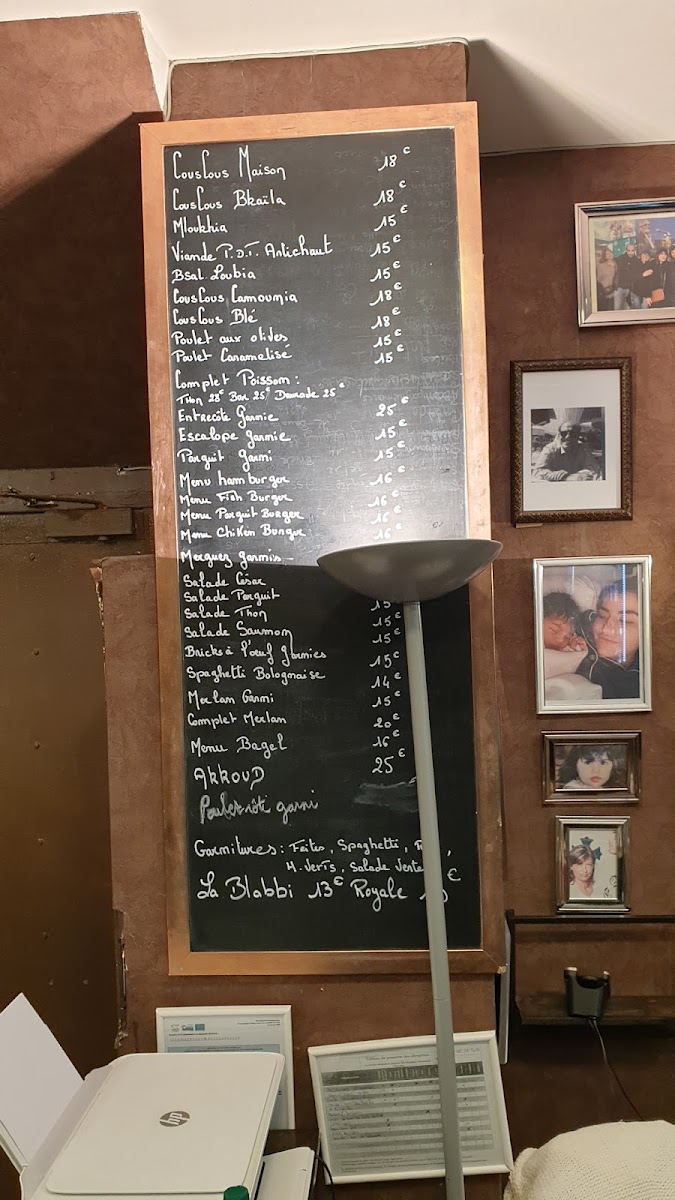 CousCous Maison 18€
CousCous Bkaïla 18€
Mloukhia 15€
Viande P.D.T. Artichaut 15€
Bsal Loubia 15€
CousCous Camounia 18€
CousCous Blé 18€
Poulet aux olives 15€
Poulet Caramelisé 15€
Complet Poisson :
Thon 28€ Bar 25€ Daurade 25€
Entrecôte Garnie 25€
Escalope garnie 15€
Parguit Garni 15€
Menu hamburger 16€
Menu Fish Burger 16€
Menu Parguit Burger 16€
Menu Chiken Burger 16€
Merguez garnis
Salade César
Salade Parguit 15€
Salade Thon 15€
Salade Saumon 15€
Bricks à l'œuf garnies 15€
Spaghetti Bolognaise 14€
Merlan Garni 15€
Complet Merlan 20€
Menu Bagel 16€
AKKOUD 25€
Poulet rôti garni
Garnitures : Frites, Spaghetti,
H. Verts, Salade Verte
La Blabbi 13€ Royale €
hp